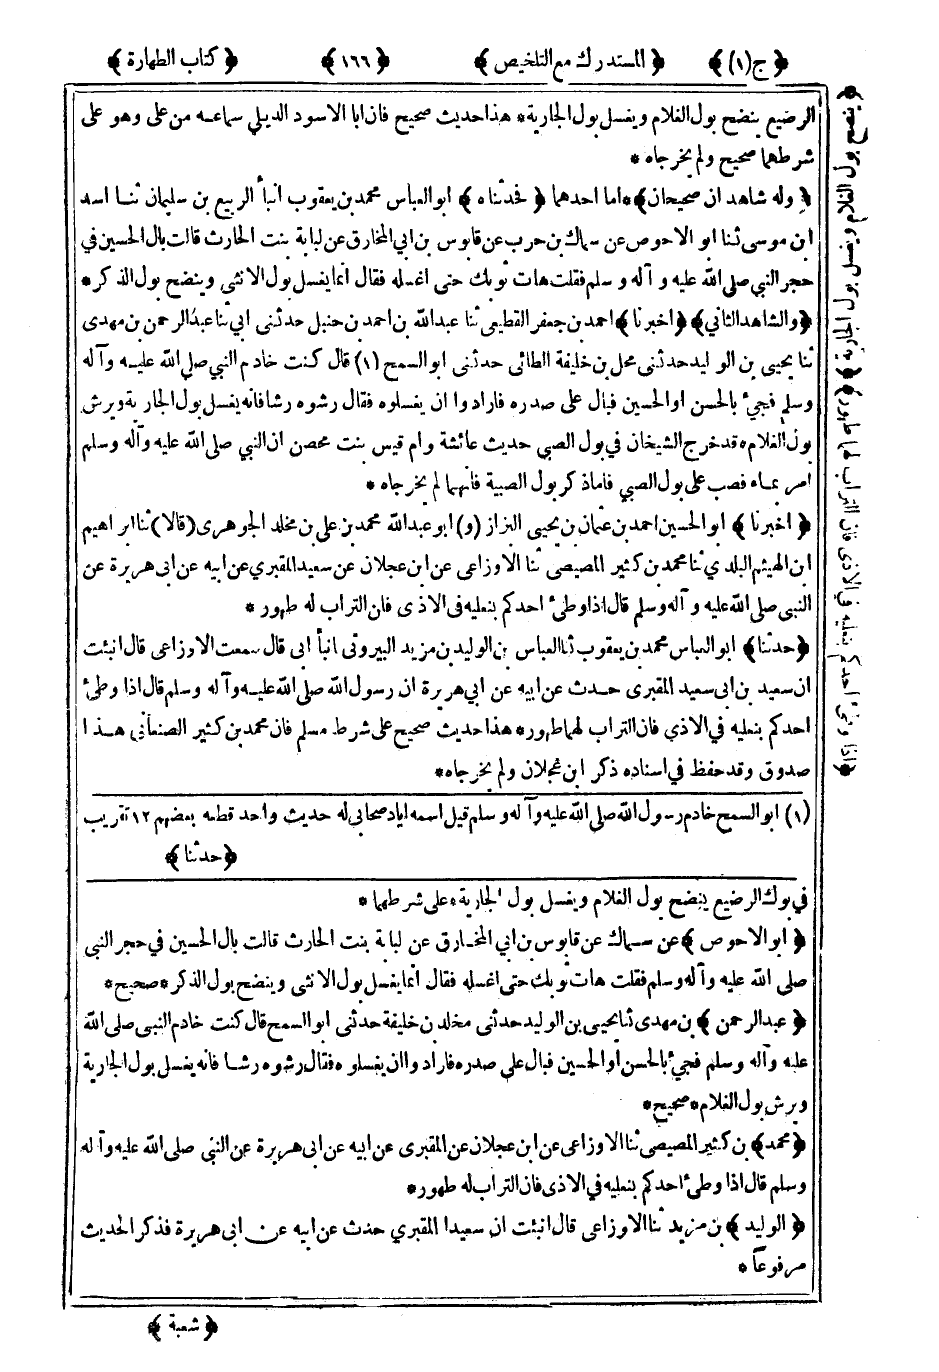 ﴿ ج(١) ﴾ ﴿ المستدرك مع التلخيص ﴾ ﴿ ١٦٦ ﴾ ﴿ كتاب الطهارة ﴾
الرضيع ينضح بول الغلام ويغسل بول الجارية * هذا حديث صحيح فان ابا الاسود الديلي سماعه من على وهو على
شرطهما صحيح ولم يخرجاه *
﴿ وله شاهد ان صحيحان ﴾ * اما احدهما ﴿ فحدثناه ﴾ ابو العباس محمد بن يعقوب انبأ الربيع بن سليمان ثنا اسد
ابن موسى ثنا ابو الاحوص عن سماك بن حرب عن قابوس بن ابي المخارق عن لبابة بنت الحارث قالت بال الحسين في
حجر النبي صلى الله عليه و آله و سلم فقلت هات ثوبك حتى اغسله فقال انما يغسل بول الانثى وينضح بول الذكر *
﴿ والشاهد الثاني ﴾ ﴿ اخبرنا ﴾ احمد بن جعفر القطيعى ثنا عبد الله بن احمد بن حنبل حدثنى ابي ثنا عبد الرحمن بن مهدى
ثنا يحيى بن الوليد حدثنى محل بن خليفة الطائى حدثنى ابو السمح (١) قال كنت خادم النبي صلى الله عليه و آله
وسلم فجيئ بالحسن او الحسين فبال على صدره فارادوا ان يغسلوه فقال رشوه رشا فانه يغسل بول الجارية ويرش
بول الغلام * قد خرج الشيخان في بول الصبي حديث عائشة وام قيس بنت محصن ان النبي صلى الله عليه وآله وسلم
امر بماء فصب على بول الصبي فاما ذكر بول الصبية فانهما لم يخرجاه *
﴿ اخبرنا ﴾ ابو الحسين احمد بن عثمان بن يحيى البزاز (و) ابو عبد الله محمد بن على بن مخلد الجوهرى (قالا) ثنا ابراهيم
ابن الهيثم البلدي ثنا محمد بن كثير المصيصى ثنا الاوزاعى عن ابن عجلان عن سعيد المقبري عن ابيه عن ابى هريرة عن
النبى صلى الله عليه و آله وسلم قال اذا وطئ احدكم بنعليه فى الاذى فان التراب له طهور *
﴿ حدثنا ﴾ ابو العباس محمد بن يعقوب ثنا العباس بن الوليد بن مزيد البيروتى انبأ ابى قال سمعت الاوزاعى قال انبئت
ان سعيد بن ابى سعيد المقبرى حدث عن ابيه عن ابي هريرة ان رسول الله صلى الله عليه وآله وسلم قال اذا وطئ
احدكم بنعليه في الاذي فان التراب لهما طهور * هذا حديث صحيح على شرط مسلم فان محمد بن كثير الصنعانى هذا
صدوق وقد حفظ في اسناده ذكر ابن عجلان ولم يخرجاه *
(١) ابو السمح خادم رسول الله صلى الله عليه وآله وسلم قيل اسمه اياد صحابي له حديث واحد قطعه بعضهم ١٢ تقريب
﴿ حدثنا ﴾
في بوك الرضيع ينضح بول الغلام ويغسل بول الجارية * على شرطهما *
﴿ ابو الاحوص ﴾ عن سماك عن قابوس بن ابي المخارق عن لبابة بنت الحارث قالت بال الحسين في حجر النبي
صلى الله عليه وآله وسلم فقلت هات ثوبك حتى اغسله فقال انما يغسل بول الانثى وينضح بول الذكر * صحيح *
﴿ عبد الرحمن ﴾ بن مهدى ثنا يحيى بن الوليد حدثنى مخلد بن خليفة حدثنى ابو السمح قال كنت خادم النبى صلى الله
عليه وآله وسلم فجيئ بالحسن او الحسين فبال على صدره فارادوا ان يغسلوه فقال رشوه رشا فانه يغسل بول الجارية
ويرش بول الغلام * صحيح *
﴿ محمد ﴾ بن كثير المصيصى ثنا الاوزاعى عن ابن عجلان عن المقبرى عن ابيه عن ابى هريرة عن النبى صلى الله عليه وآله
وسلم قال اذا وطئ احدكم بنعليه في الاذى فان التراب له طهور *
﴿ الوليد ﴾ بن مزيد ثنا الاوزاعى قال انبئت ان سعيدا المقبري حدث عن ابيه عن ابى هريرة فذكر الحديث
مرفوعاً *
﴿ شعبة ﴾
﴿ ينضح بول الغلام ويغسل بول الجارية ﴾ ﴿ اذا وطئ احدكم بنعليه في الاذى فان التراب لهما طهور ﴾